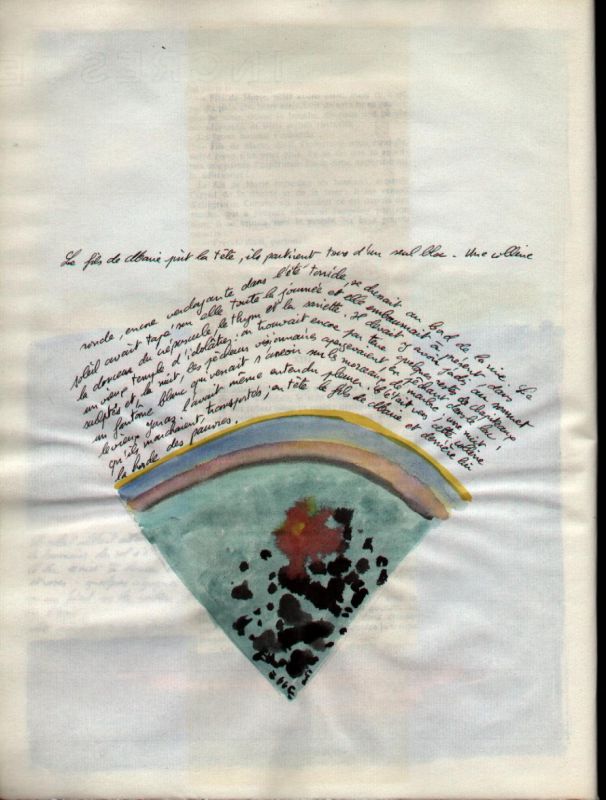 Le fils de Marie prit la tête, ils partirent tous d'un seul bloc - Une colline
ronde, encore verdoyante dans l'été torride, se dressait au bord de la rive. Le
soleil avait tapé sur elle toute la journée et elle embaumait à présent, dans
la douceur du crépuscule, le thym et la sariette. Il devait y avoir jadis, au sommet
un vieux temple d'idolâtres: on trouvait encore par terre quelques restes de chapiteaux
sculptés et, la nuit, les pêcheurs visionnaires apercevaient, en pêchant dans le lac,
un fantôme blanc qui venait s'asseoir sur les morceaux de marbre, une nuit
le vieux Jonas l'avait même entendu pleurer. C'était vers cette colline
qu'ils marchaient transportés, en tête le fils de Marie et derrière lui
la horde des pauvres.